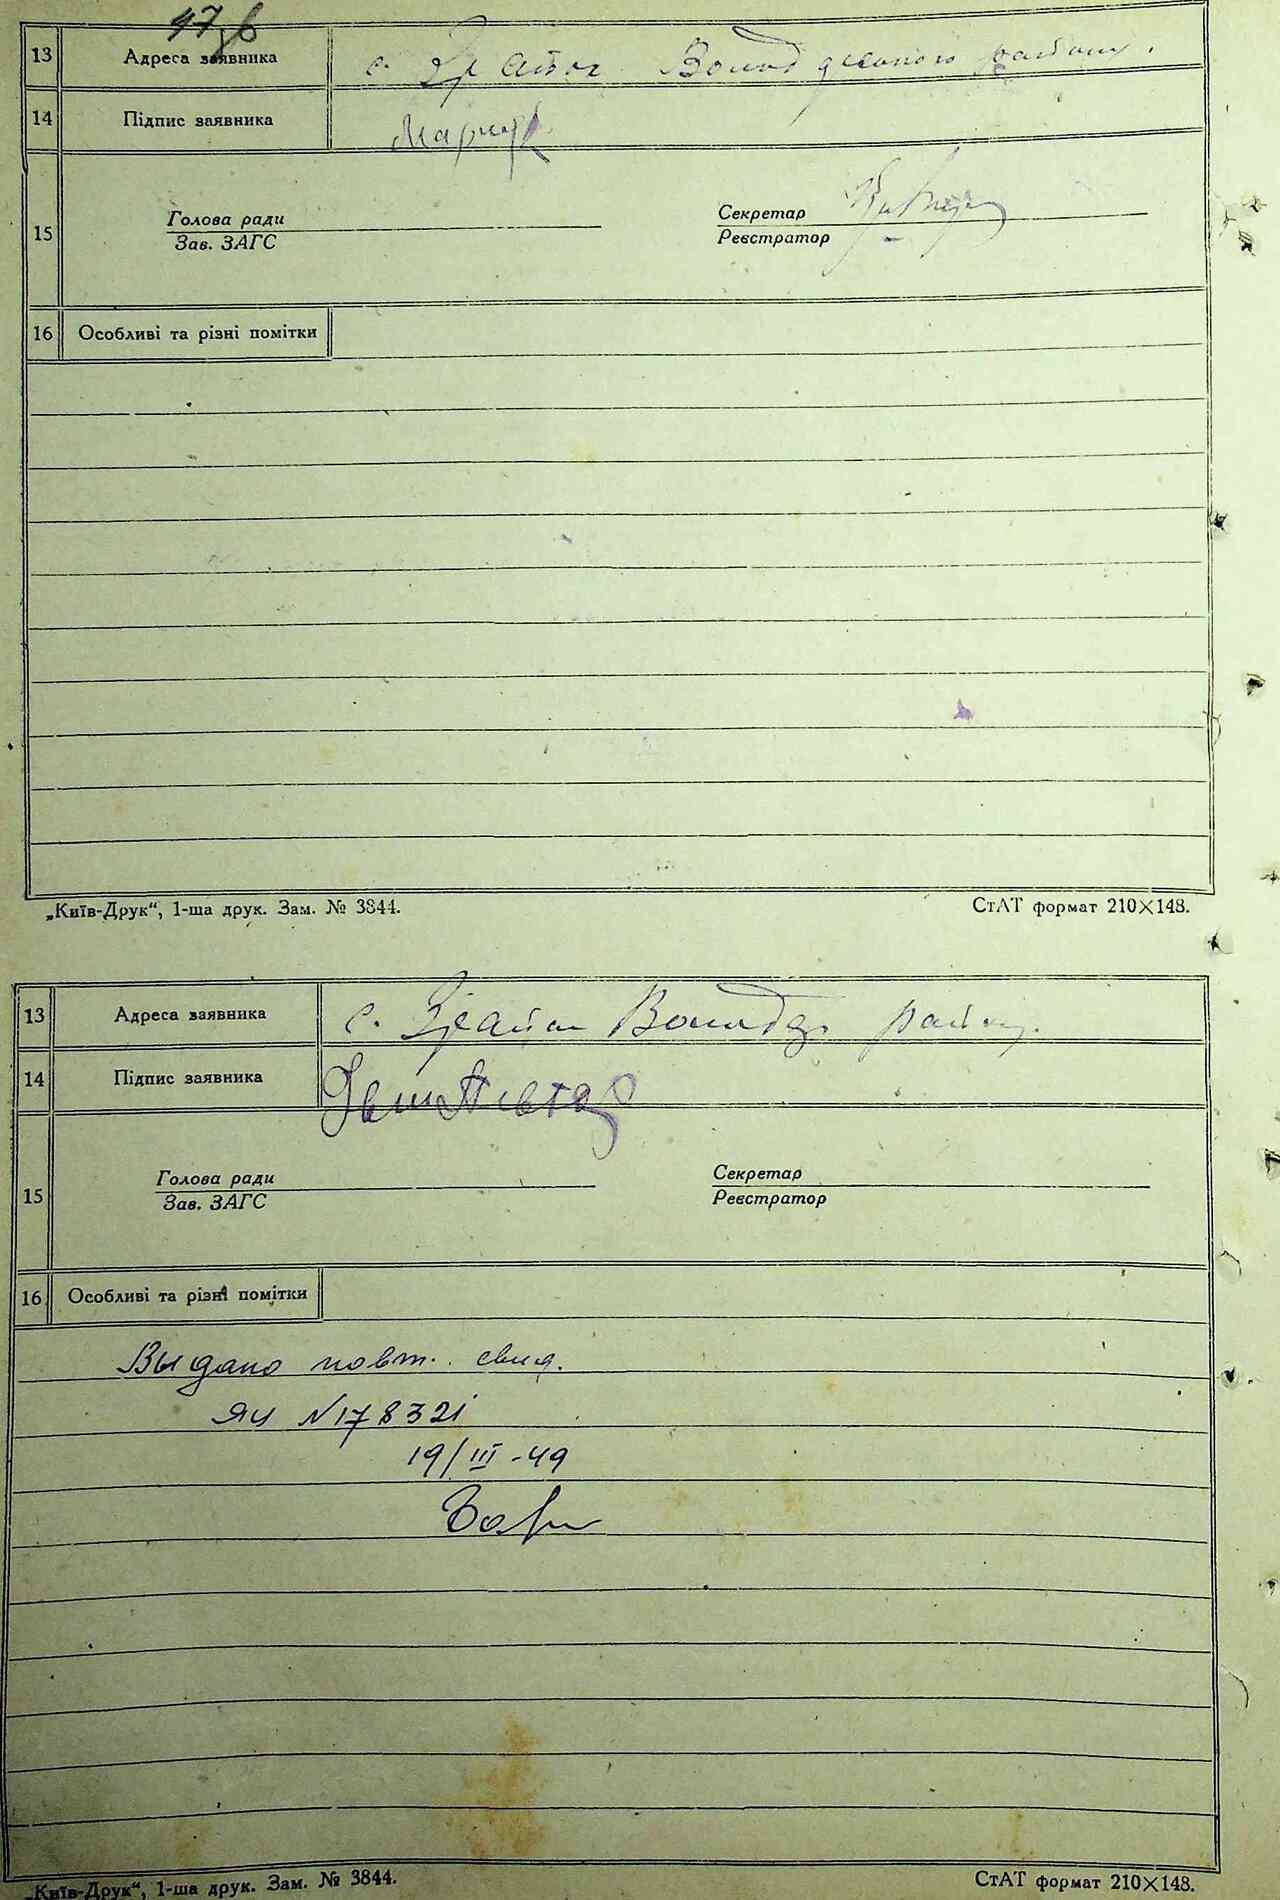 47зв
13 Адреса заявника с.
14 Підпис заявника
15 Голова ради
Зав. ЗАГС
Секретар
Реєстратор
16 Особливі та різні помітки
„Київ-Друк“, 1-ша друк. Зам. № 3844.
СтАТ формат 210×148.
13 Адреса заявника с.
14 Підпис заявника
15 Голова ради
Зав. ЗАГС
Секретар
Реєстратор
16 Особливі та різні помітки
Выдано повт. свид.
ЯЦ N178321
19/III-49
„Київ-Друк“, 1-ша друк. Зам. № 3844.
СтАТ формат 210×148.